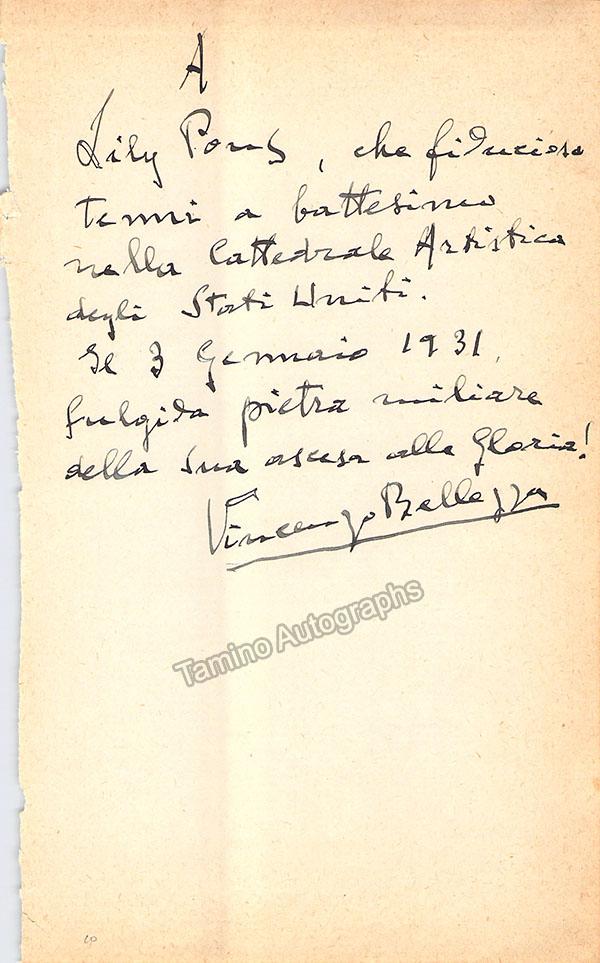 A
Lily Pons, che fiducioso
tenni a battesimo
nella Cattedrale Artistica
degli Stati Uniti.
Il 3 Gennaio 1931,
fulgida pietra miliare
della sua ascesa alla Gloria!
Vincenzo Bellezza
Tamino Autographs